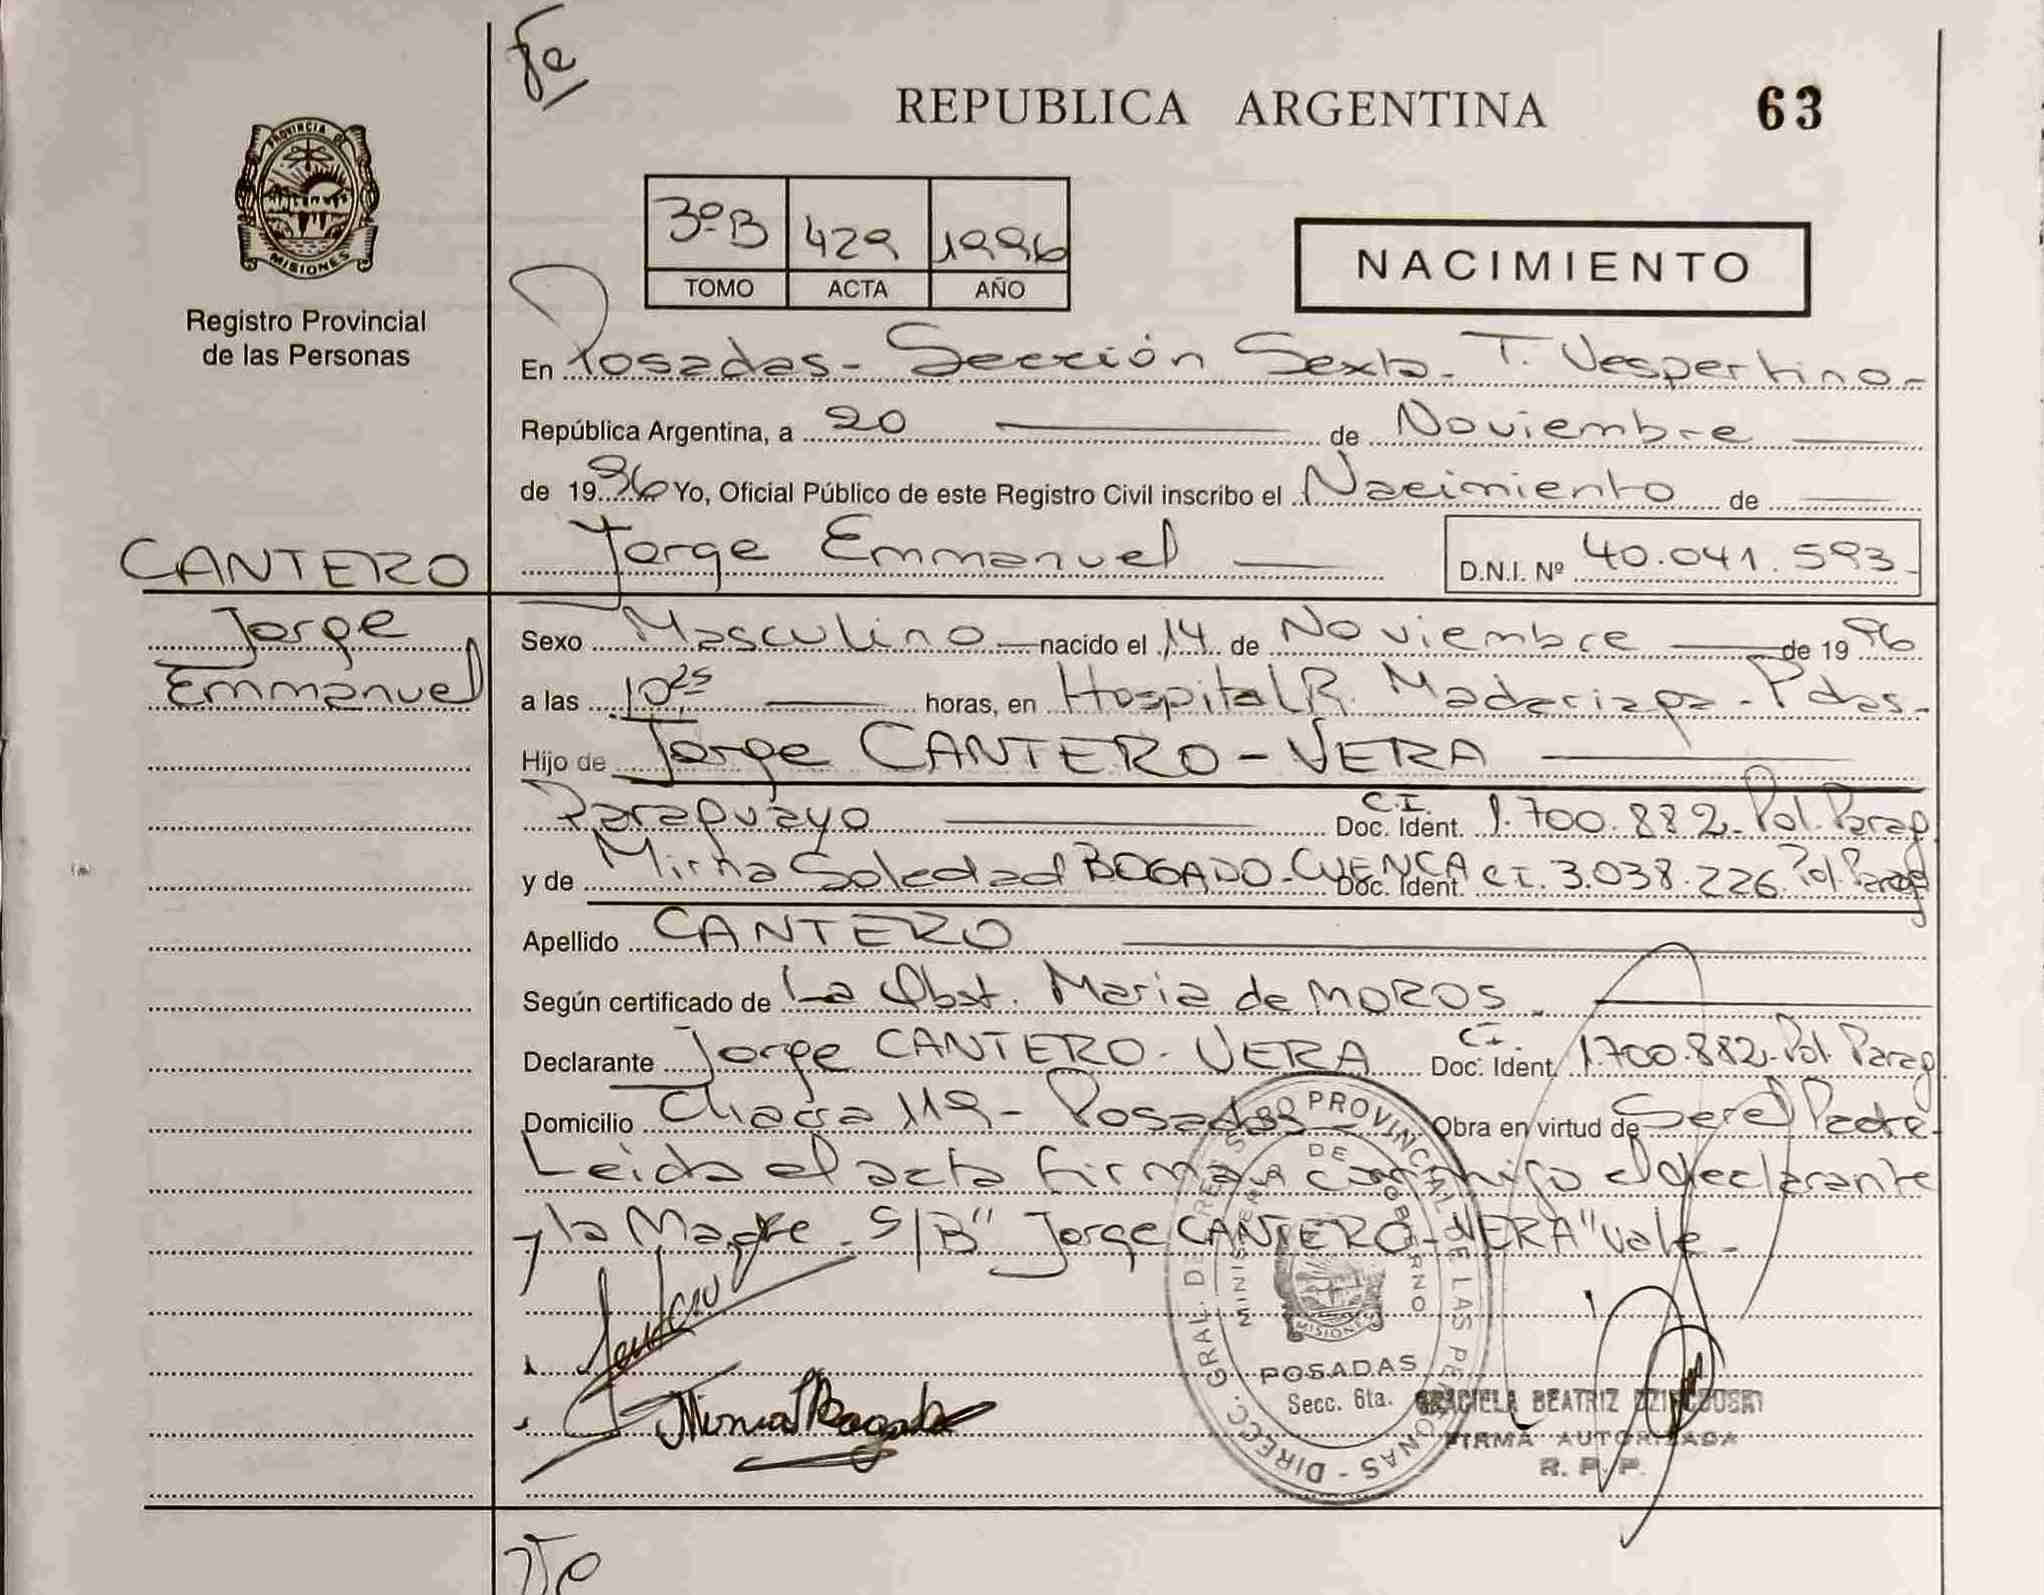 Fe
REPUBLICA ARGENTINA
63
PROVINCIA DE
MISIONES
Registro Provincial
de las Personas
3ºB 429 1996
TOMO ACTA AÑO
NACIMIENTO
En Posadas- Sección Sexta. T. Vespertino-
República Argentina, a 20 de Noviembre
de 1996 Yo, Oficial Público de este Registro Civil inscribo el Nacimiento de
Jorge Emmanuel D.N.I. Nº 40.041.593-
CANTERO
Jorge
Emmanuel
Sexo Masculino nacido el 14 de Noviembre de 1996
a las 10,25 horas, en Hospital R. Madariaga - Pdas-
Hijo de Jorge CANTERO-VERA
Paraguayo C.I. Doc. Ident. 1.700.882-Pol. Parag
y de Mirna Soledad BOGADO-CUENCA Doc. Ident. C.I. 3.038.226 Pol. Parag
Apellido CANTERO
Según certificado de La Obst. Maria de MOROS
Declarante Jorge CANTERO-VERA C.I. Doc. Ident. 1.700.882-Pol. Parag
Domicilio Chacra 119- Posadas Obra en virtud de Ser el Padre-
Leida el acta firma conmigo el declarante
y la Madre - S/B" Jorge CANTERO-VERA" Vale-
Mirna Bogado
DIRECC. GRAL. DE REGISTRO PROVINCIAL DE LAS PERSONAS
MINISTERIO DE GOBIERNO
MISIONES
POSADAS
Secc. 6ta.
GRACIELA BEATRIZ
FIRMA AUTORIZADA
R. P. P.